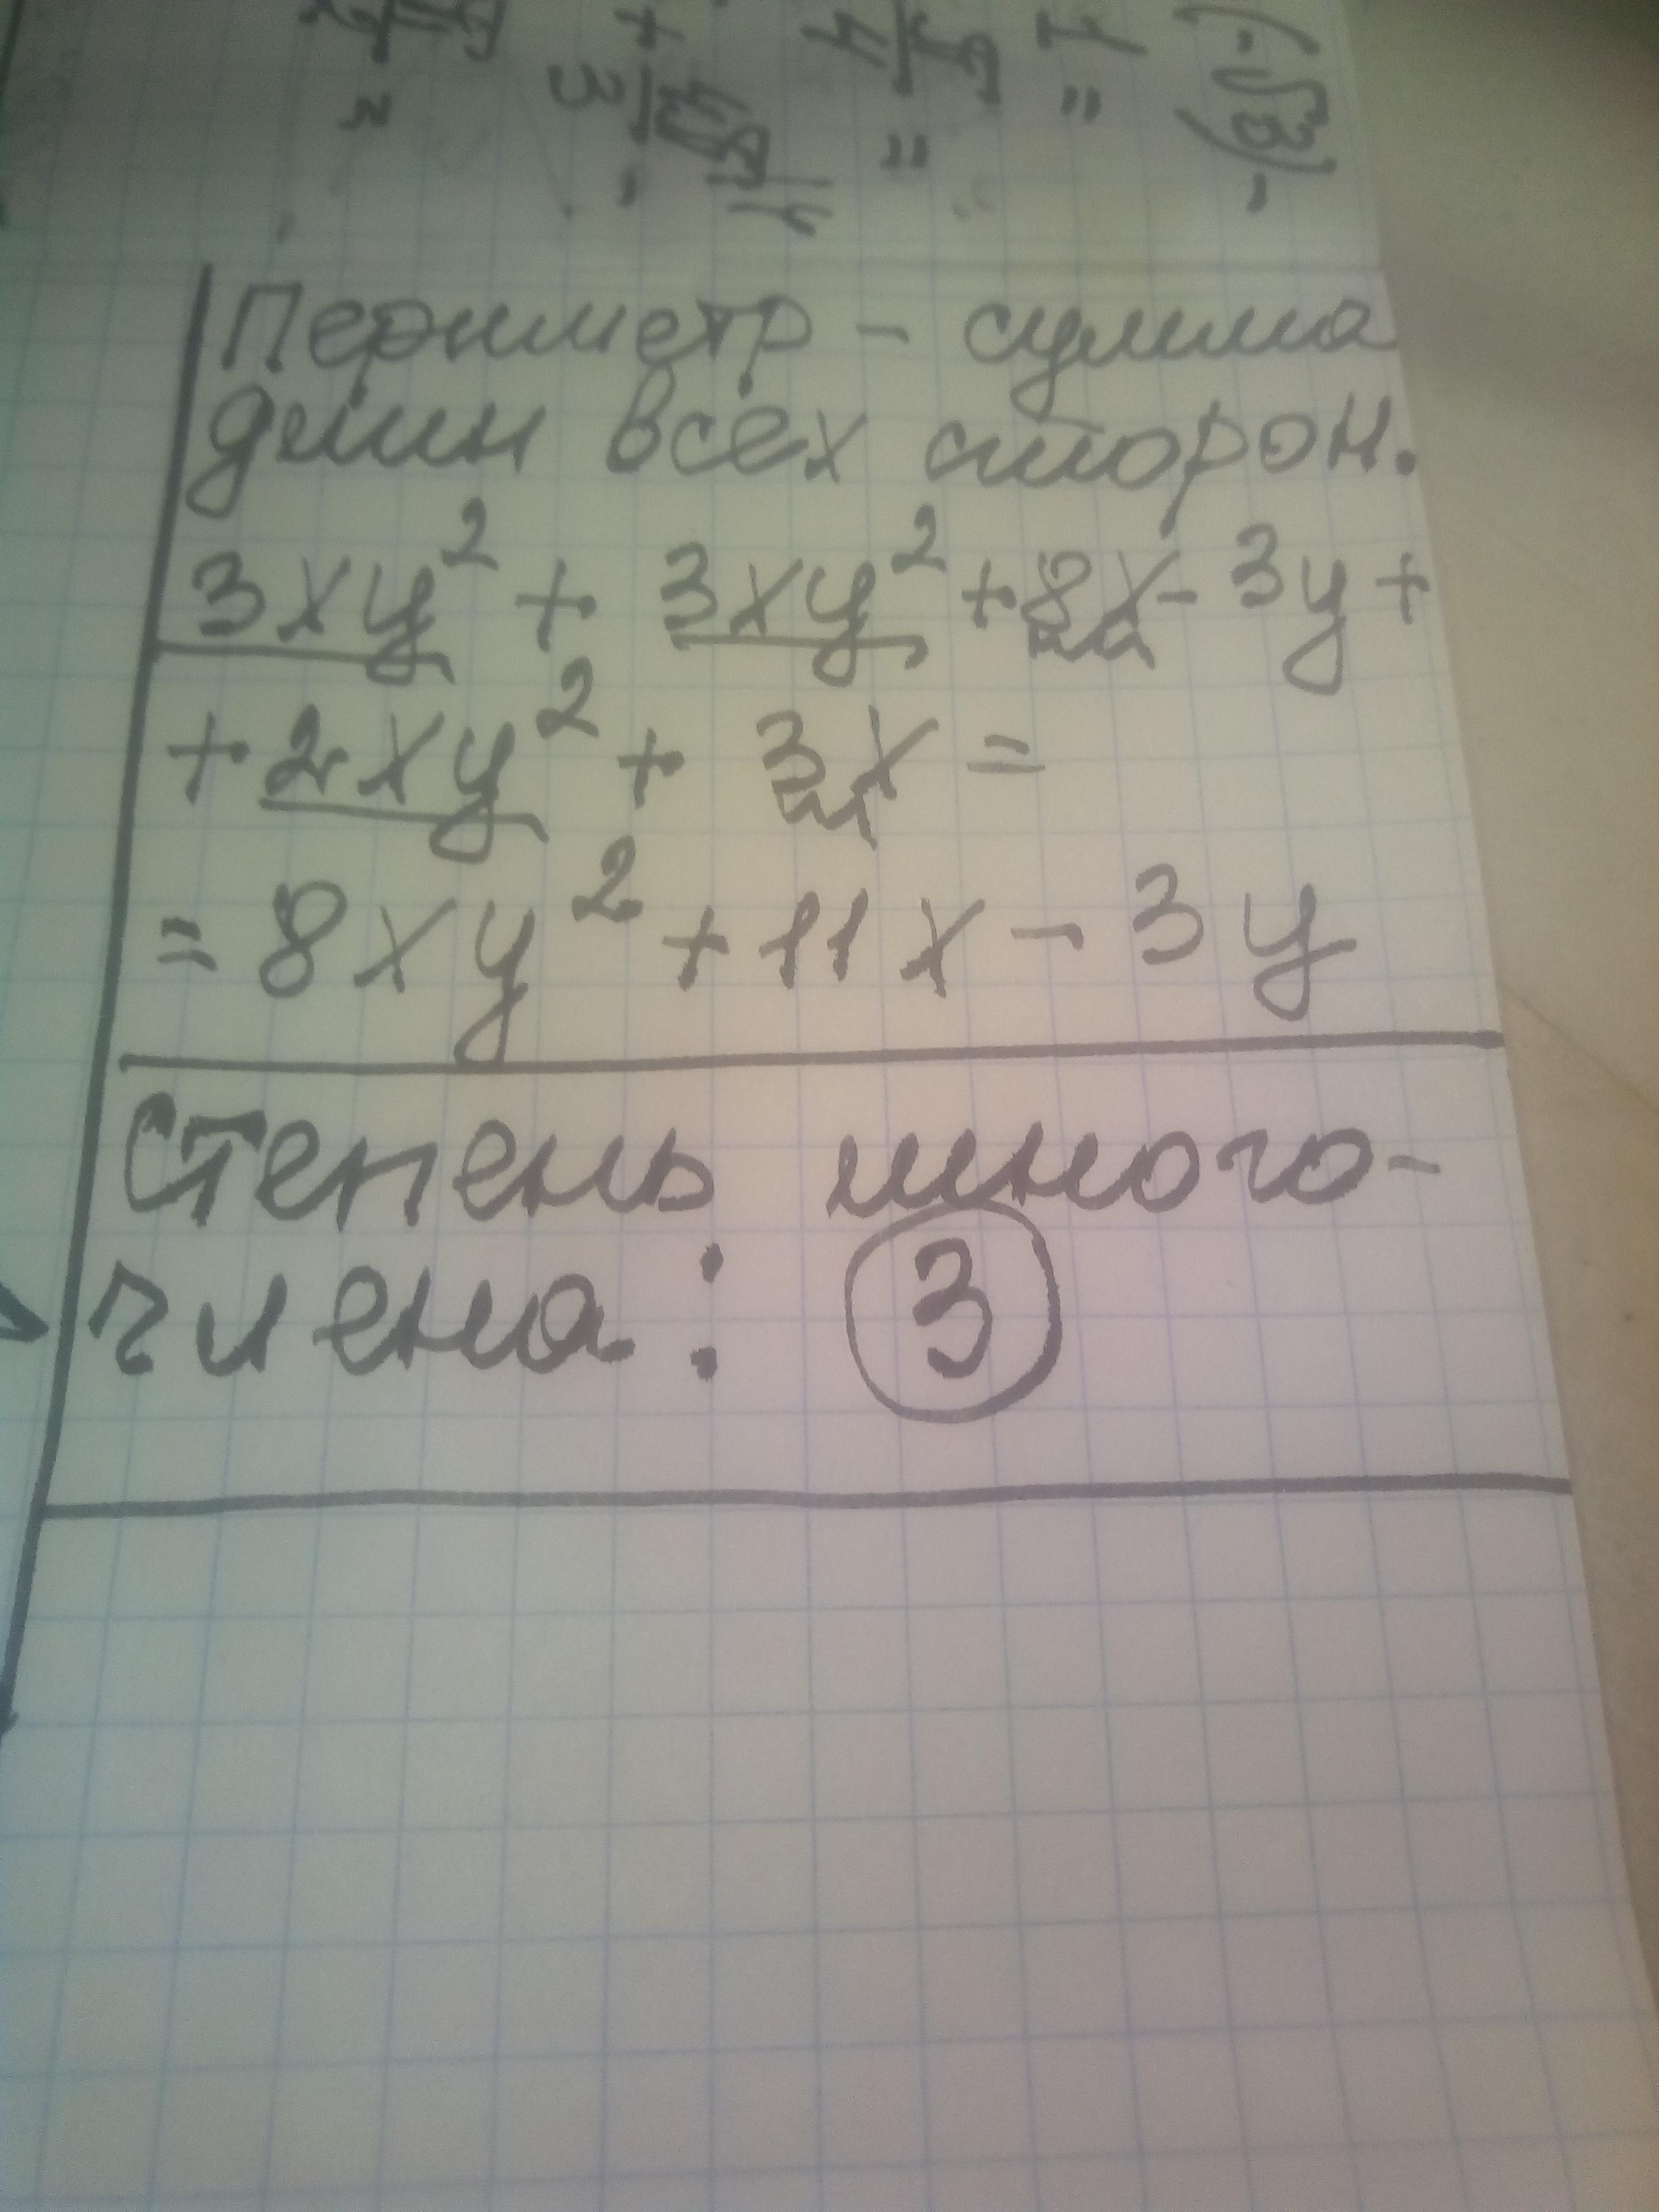 Периметр - сумма
длин всех сторон.
3xy² + 3xy² + 8x - 3y +
+ 2xy² + 3x =
= 8xy² + 11x - 3y
Степень много-
члена: 3